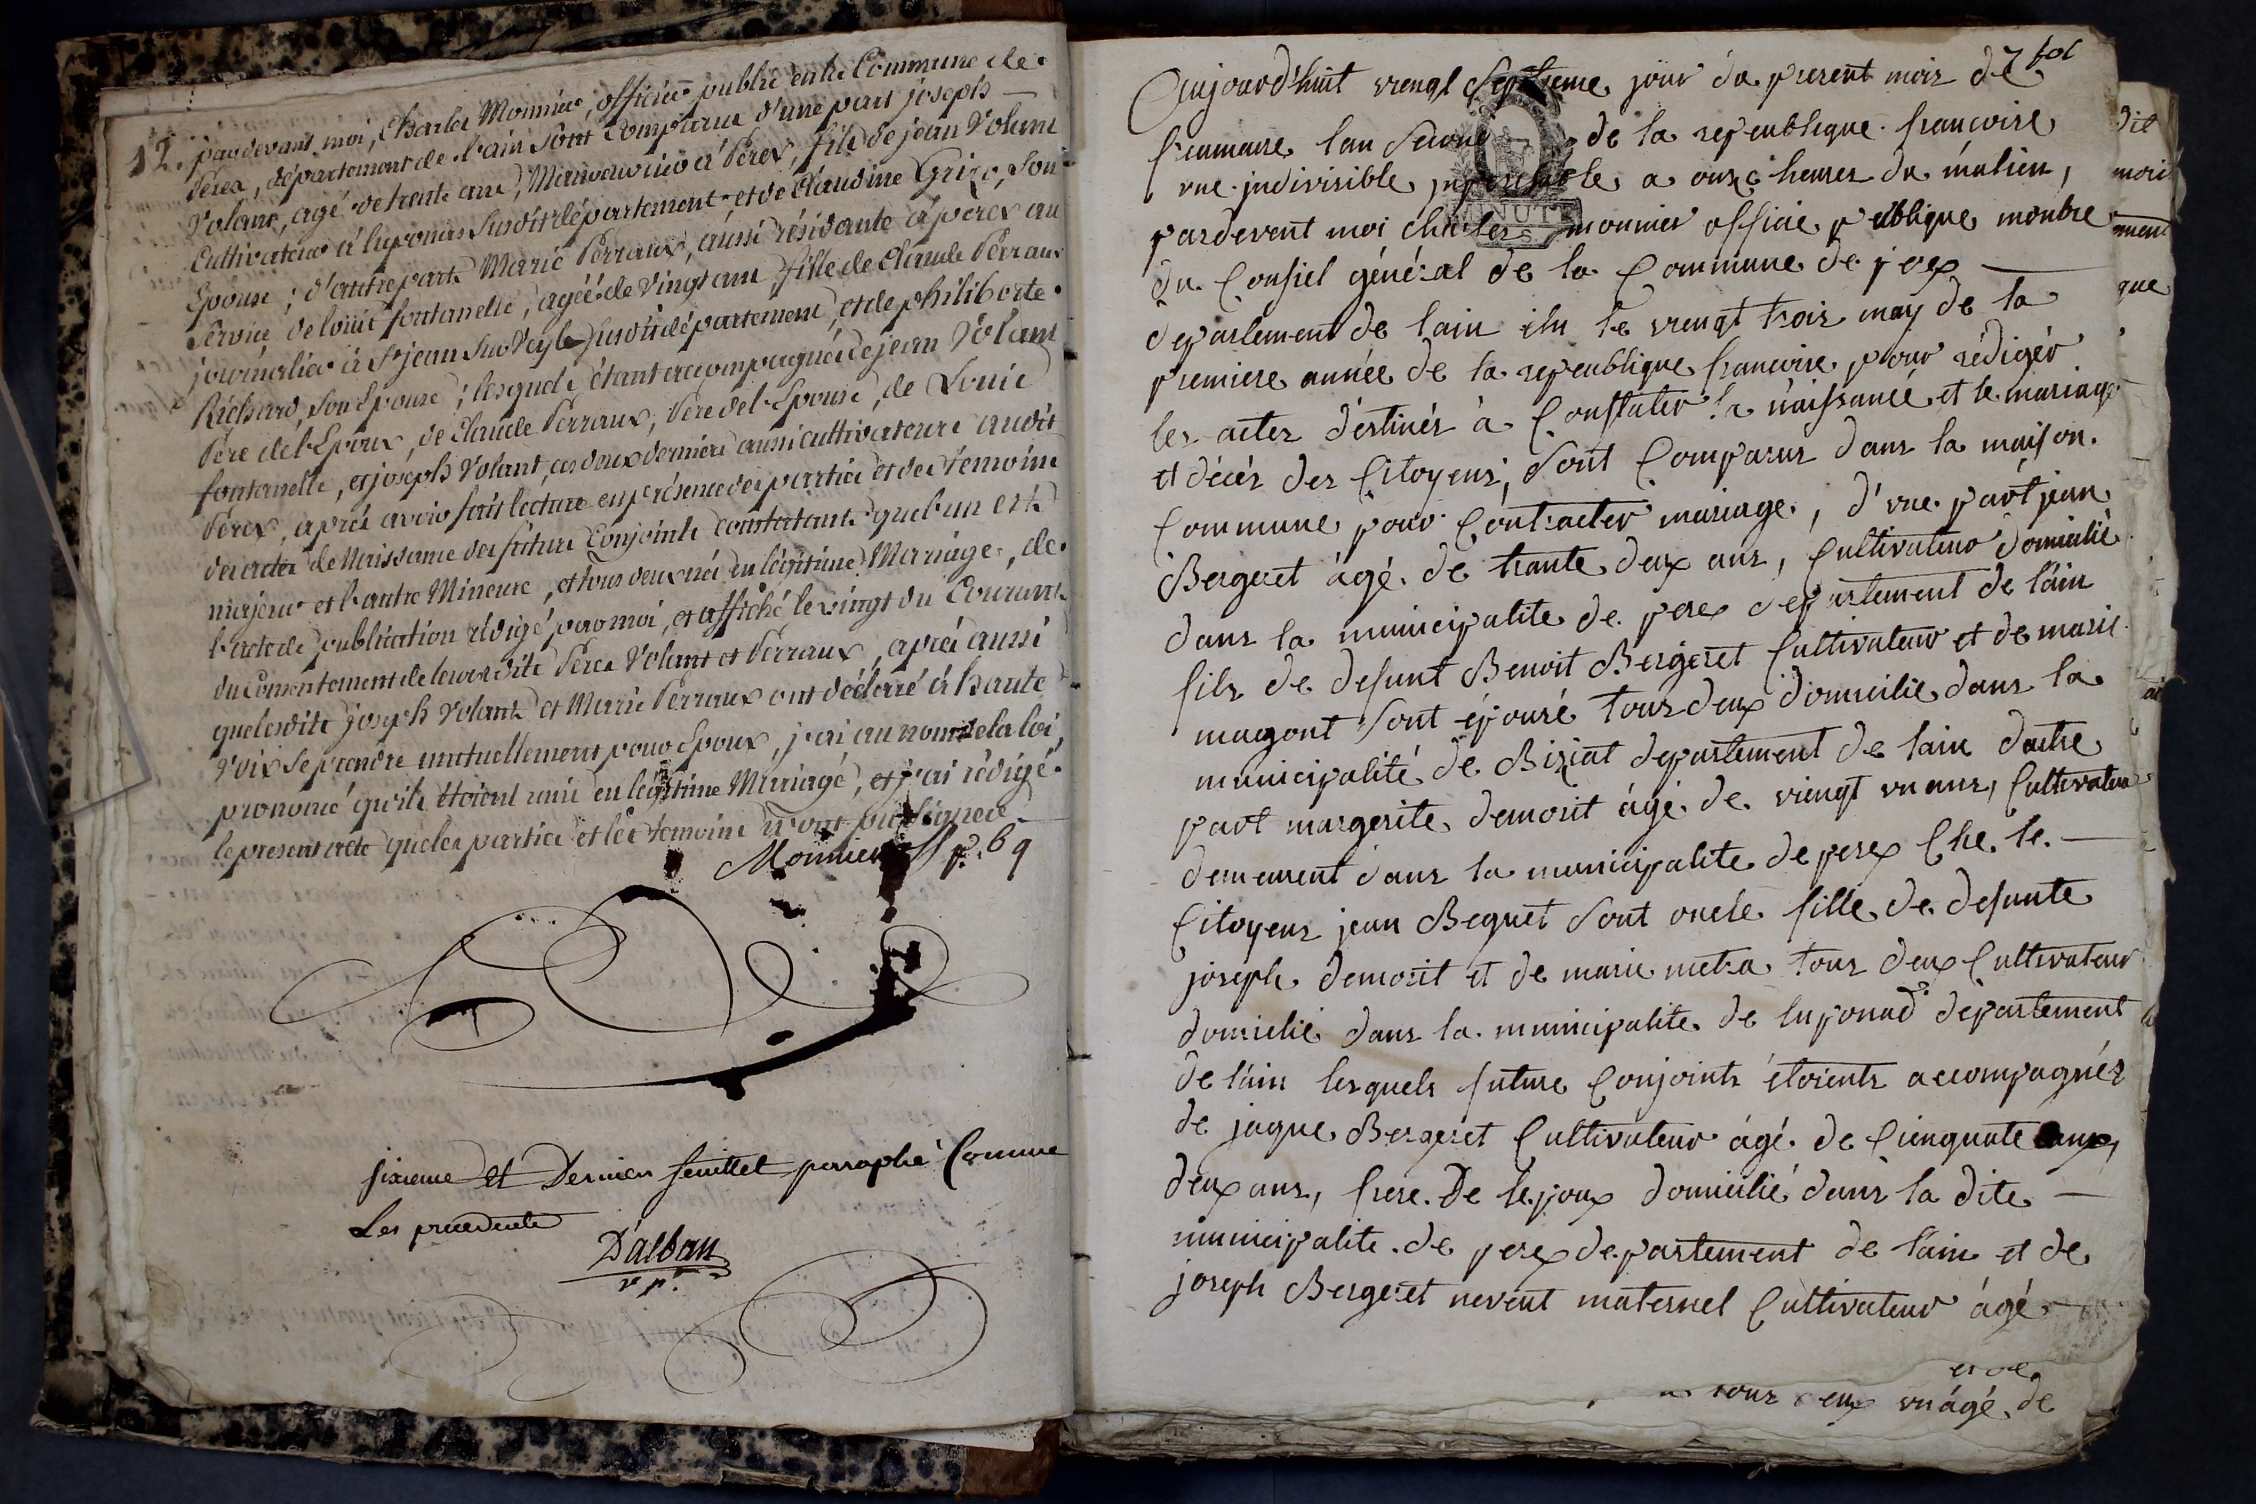 12. pardevant moi, Charles Monnier, officier public en la Commune de
Pérex, département de l'ain sont comparus d'une part joseph
Volant, agé de trente ans, Manouvrier à Pérex, fils de jean Volant
Cultivateur à luponas susdit département, et de Claudine Grizo, son
Epouse ; d'autre part Marie Perraux, aussi résidante à perex au
service de louis fontanelle, agéé de vingt ans fille de Claude Perraux
journalier à St jean sur Veyle susdit département, et de philiberte
Richard, son Epouse ; lesquels étant accompagnés de jean Volant
Père de l'Epoux, de Claude Perraux, Père de l'Epouse, de Louis
fontanelle, et joseph Volant, ces deux derniers aussi cultivateurs audit
Pérex, après avoir fait lecture en présence des parties et des temoins
des actes de Naissance des futurs Conjoints constatants que l'un est
majeur et l'autre Mineure, et tous deux nés en légitime Mariage, de
l'acte de publication rédigé par moi, et affiché le vingt du Courant
du Consentement de leurs dits Pères Volant et Perraux, après aussi
que lesdits joseph Volant et Marie Perraux ont déclaré à haute
voix se prendre mutuellement pour Epoux, j'ai au nom de la loi,
prononcé qu'ils étoient unis en légitime Mariage, et j'ai rédigé
le present acte que les parties et les temoins n'ont pu signer
Monnier
sixieme et Dernier feuillet parraphé Comme
Les precedents
D'alban
Aujourd'huit viengt septieme jour du present mois de
frumaire lan second de la repeublique francoise
vne indivisible a onze heures du matien,
pardevent moi charles monnier officie publique monbre
du Consiel général de la Commune de perex
departement de lain elu le viengt trois may de la
premiere année de la repeublique francoise pour rédigér
les actes déstinés à Constater la naissance et le mariage
et décés des Citoyens, sont Comparus dans la maison
Commune pour Contracter mariage, d'vne part jean
Bergeret ágé de trante deux ans, Cultivateur domicilié
dans la municipalite de perex departement de l'ain
fils de defunt Benoit Bergeret Cultivateur et de marie
magont sont épousé tous deux domicilie dans la
municipalité de Biziat departement de lain dautre
part margerite demorit ágé de viengt vn ans, Cultivateur
demeurent dans la municipalite de perex Che le
Citoyens jean Beguet sont oncle fille de defunte
joseph demorit et de marie metra tous deux Cultivateur
domicilié dans la municipalite de luponad departement
de l'ain lesquels future Conjoints étoients accompagnés
de jaque Bergeret Cultivateur ágé de Cienquate
deux ans, frere de lepoux domicilié dans la dite
municipalite de perex departement de l'ain et de
joseph Bergeret neveut maternel Cultivateur ágé
et de
tour eux vn ágé de